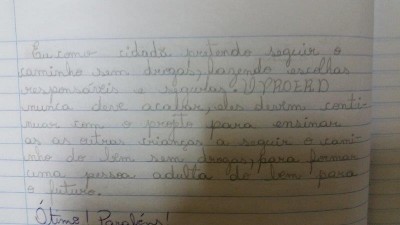 Eu como cidadã pretendo seguir o
caminho sem drogas, fazendo escolhas
responsáveis e seguras. O PROERD
nunca deve acabar, eles devem conti-
nuar com o projeto para ensinar
as às outras crianças a seguir o cami-
nho do bem sem drogas, para formar
uma pessoa adulta do bem para
o futuro.
Ótimo! Parabéns!